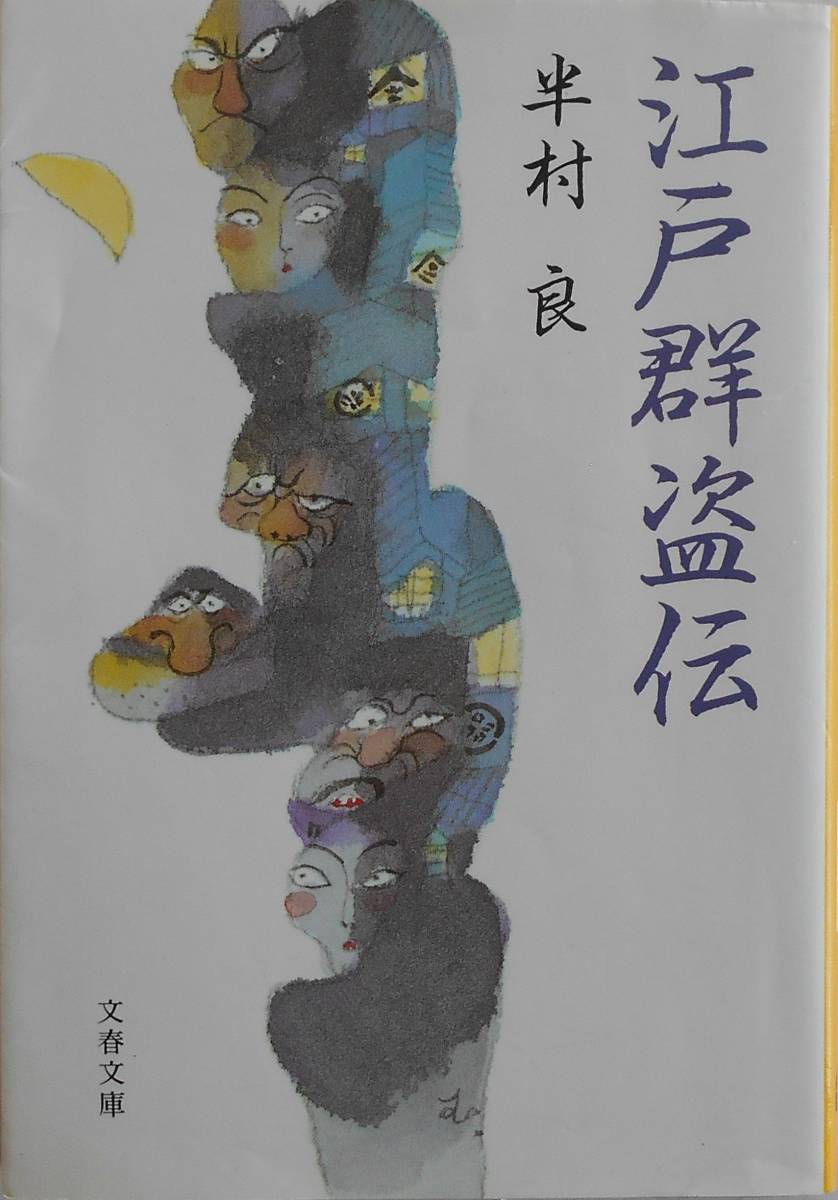 江戸群盗伝
半村 良
文春文庫